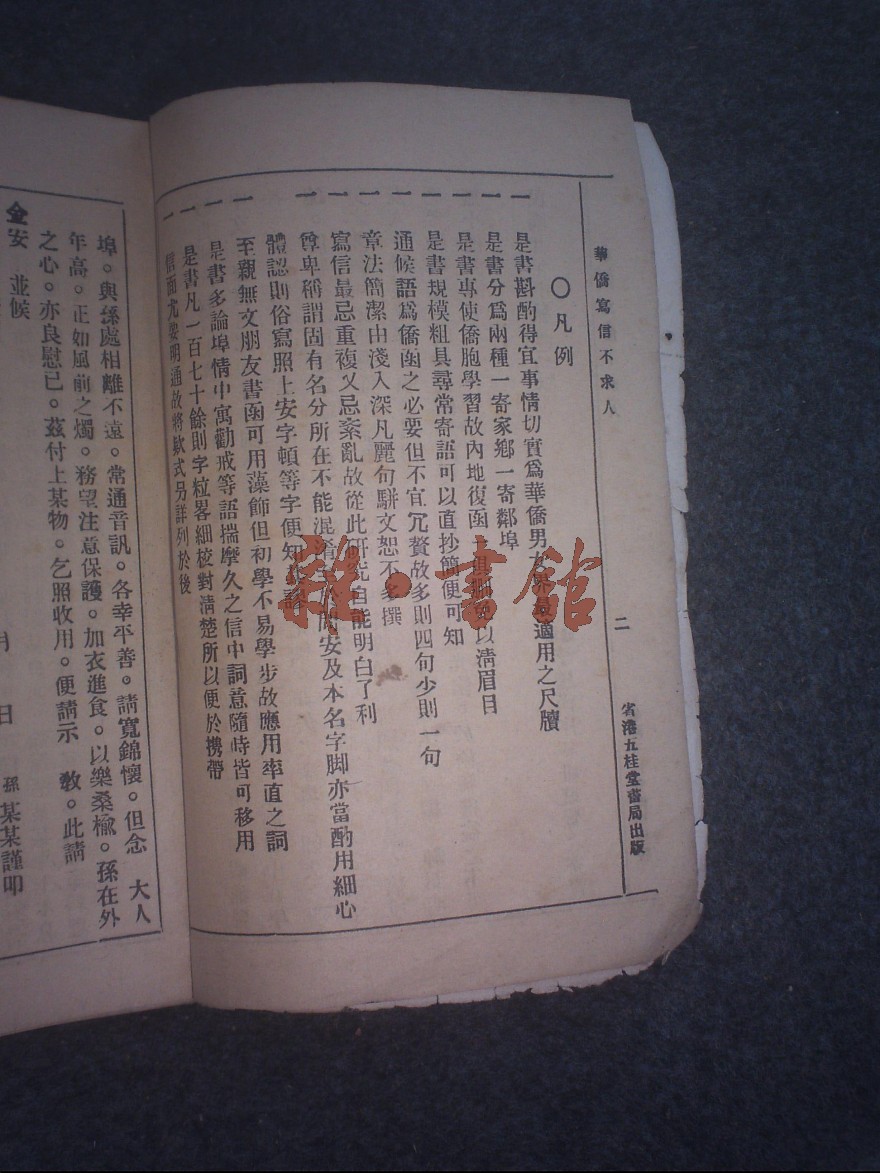 華僑寫信不求人
二
省港五桂堂書局出版
〇凡例
一 是書斟酌得宜事情切實爲華僑男女界適用之尺牘
一 是書分爲兩種一寄家鄕一寄鄰埠
一 是書專使僑胞學習故內地復函以淸眉目
一 是書規模粗具尋常寄語可以直抄簡便可知
一 通候語爲僑函之必要但不宜冗贅故多則四句少則一句
一 章法簡潔由淺入深凡麗句駢文恕不多撰
一 寫信最忌重複又忌紊亂故從此硏究自能明白了利
一 尊卑稱謂固有名分所在不能混淆安及本名字脚亦當酌用細心
體認則俗寫照上安字頓等字便知
至親無文朋友書函可用藻飾但初學不易學步故應用率直之詞
一 是書多論埠情中寓勸戒等語揣摩久之信中詞意隨時皆可移用
一 是書凡一百七十餘則字粒畧細校對淸楚所以便於携帶
一 信面尤要明通故將欵式另詳列於後
埠。與孫處相離不遠。常通音訊。各幸平善。請寬錦懷。但念 大人
年高。正如風前之燭。務望注意保護。加衣進食。以樂桑楡。孫在外
之心。亦良慰已。茲付上某物。乞照收用。便請示 敎。此請
金安 並候
月 日 孫某某謹叩
殺·書館